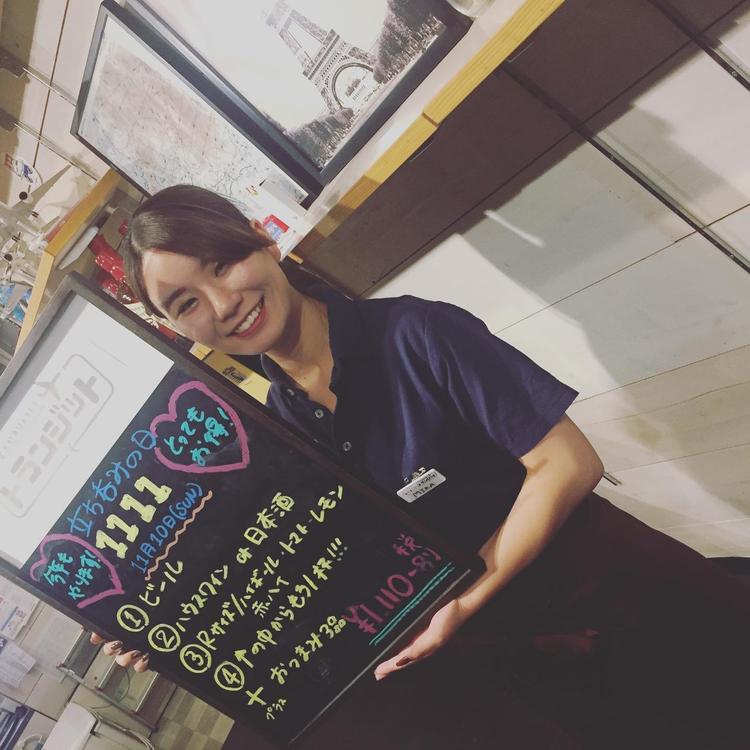 トランジット
立ち呑みの日
1111
11月10日(SUN)
とっても
お得!
今年も
やります!
① ビール
② ハウスワイン or 日本酒
③ Rサイズ/ハイボール トマト・レモン
赤ハイ
④ ↑の中からもう1杯!!!
+ おつまみ3品
プラス
¥1.110-税別